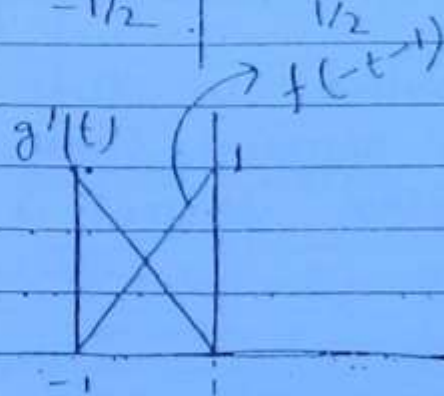 -1/2 1/2
f(-t-1)
g'(t) 1
-1